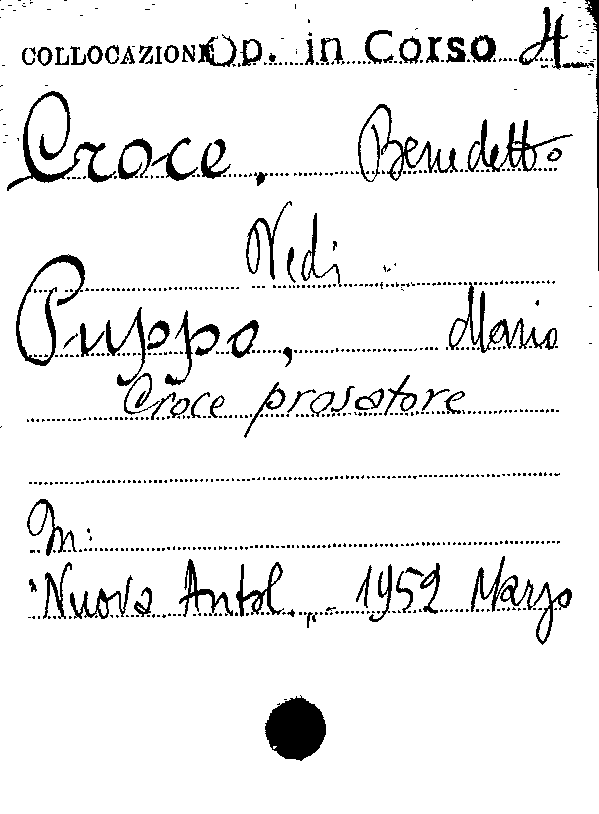 COLLOCAZIONE Op. in Corso H
Croce, Benedetto
Vedi
Puppo, Mario
Croce prosatore
In:
"Nuova Antol.„ 1952 Marzo